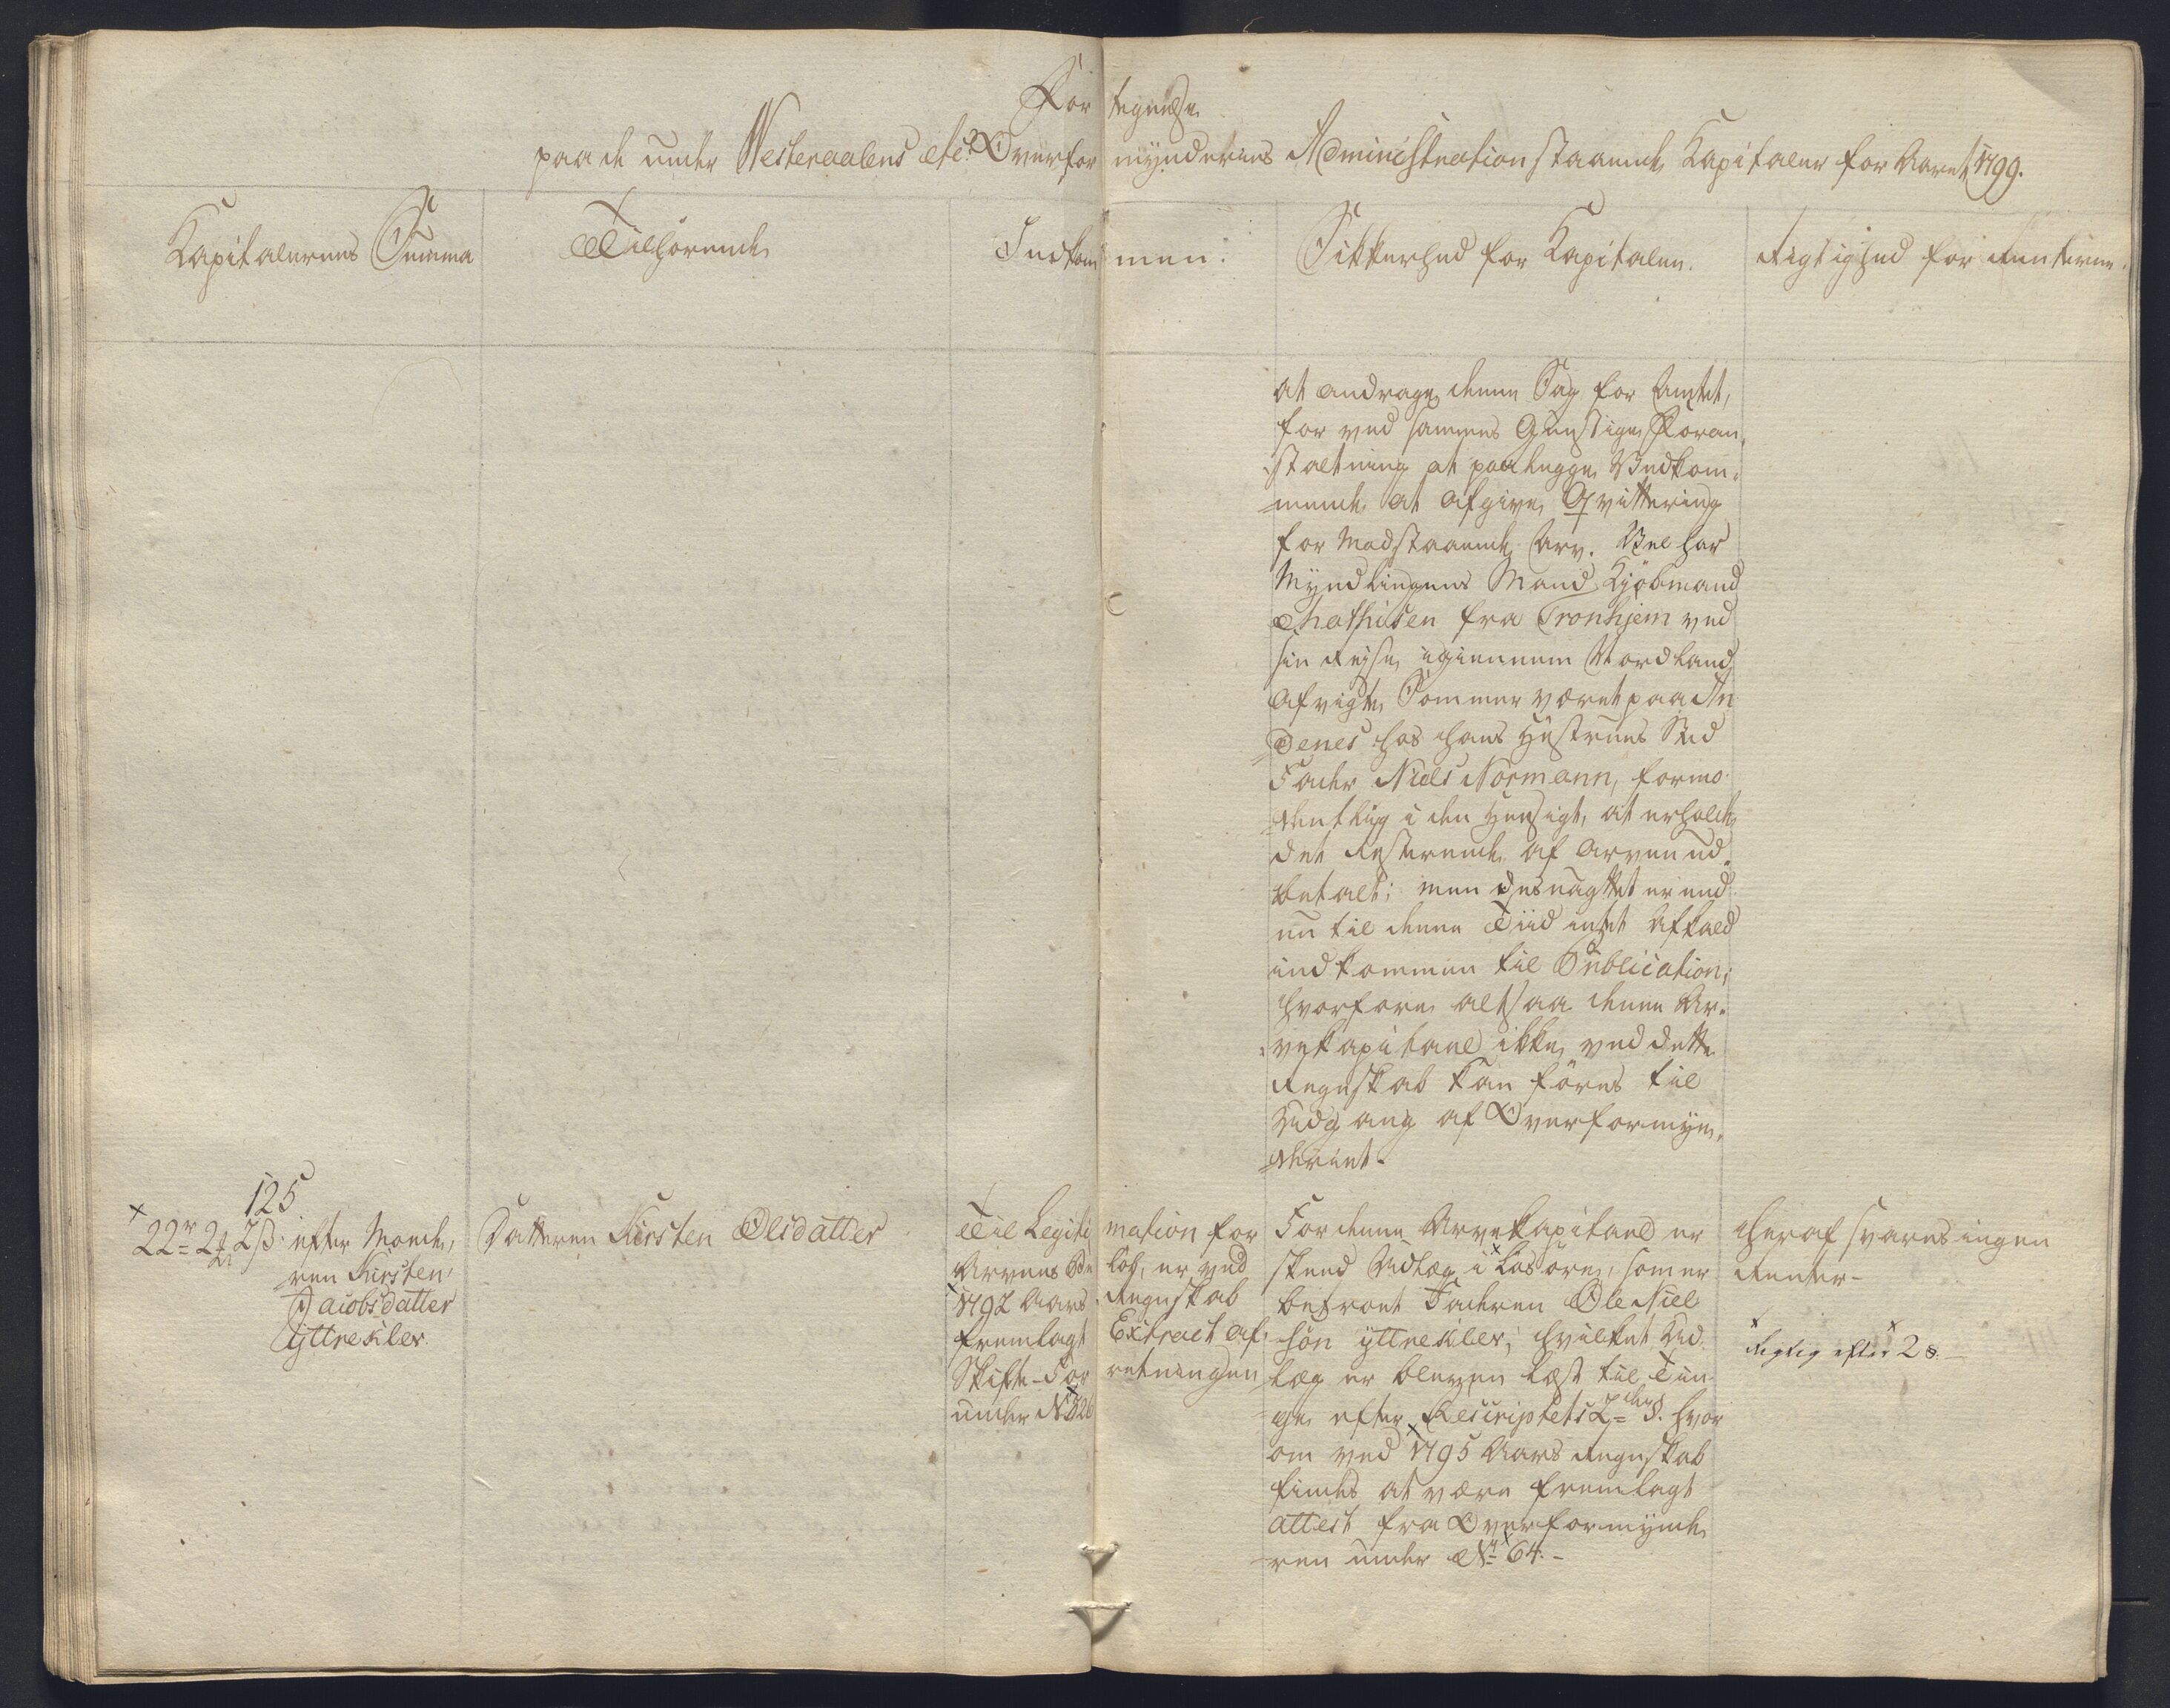 Fortegnelse
paa de under Westeraalens etc: Overformynderies Administration staaende Kapitaler for Aaret 1799.
Kapitalernes Summa
Tilhørende
Indkommen.
Sikkerhed for Kapitalen.
Rigtighed for Renterne.
at andrage denne Sag for Amtet,
for ved sammes Gunstige Foran-
staltning at paalegge Vedkom-
mende at afgive Qvittering
for Modstaaende Arv. Vel har
Myndlingens Mand Kjöbmand
Mathisen fra Tronhjem ved
sin Rejse igiennem Nordland
afvigte Sommer været paa An
denes hos hans Hustrues Sted
Fader Niels Normann, formo
dentlig i den Hensigt, at erholde
det Resterende af Arven ud-
betalt; men desuagtet er end
nu til denne Tiid intet Afkald
indkommen til Publication;
hvorfore altsaa denne Ar-
vekapitael ikke ved dette
Regnskab kan föres til
Udgang af Overformyn-
deriet.
125.
22r 2 2 ß. efter Mode,
ren Kirsten
Jacobsdatter
Yttrekiler.
Datteren Kirsten Olsdatter
Til Legitimation for
Arvens Beløb, er ved
1792 Aars Regnskab
fremlagt Extract af
Skifte-Forretningen
under No 326
For denne Arvekapitael er
skeed Udlæg i Lösöre, som er
betroet Faderen Ole Niel
sön Yttrekiler, hvilket Ud
læg er bleven læst til Tin
ge efter Rescriptets 2den §. hvor
om ved 1795 Aars Regnskab
findes at være fremlagt
attest fra Overformynde
ren under No 64.-
Heraf svares ingen
Renter-
Rigtig efter 28.-